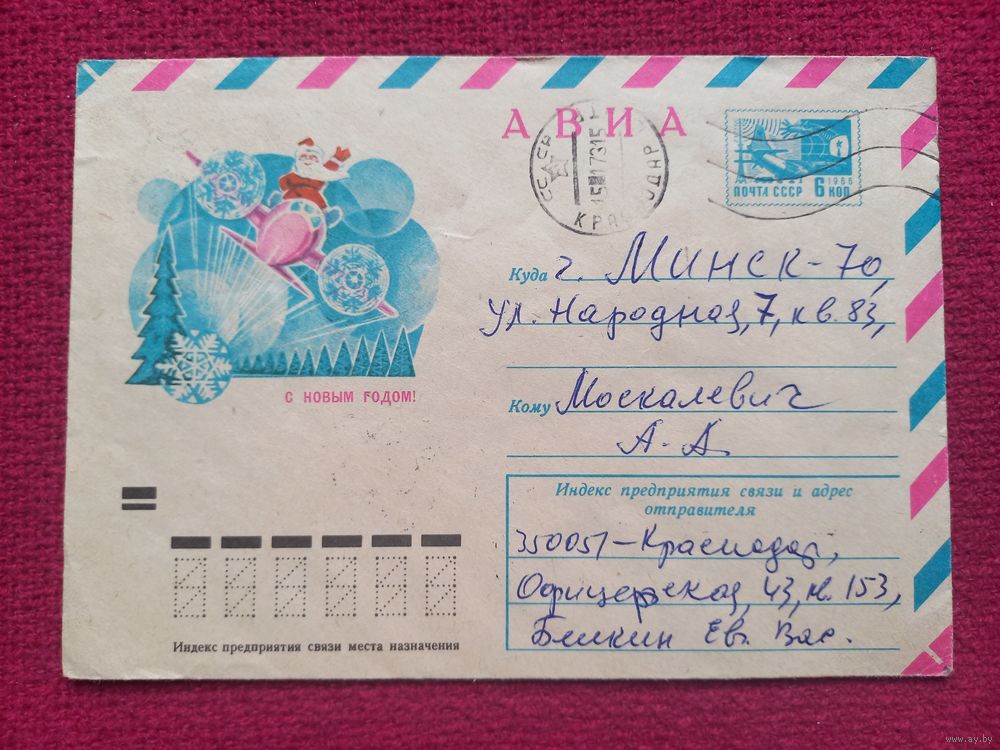 АВИА
СССР
КРАСНОДАР
ПОЧТА СССР 6 КОП
1966
Куда г. Минск-70,
ул. Народная, 7, кв. 83,
С НОВЫМ ГОДОМ!
Кому Москалевич
А. А.
Индекс предприятия связи и адрес
отправителя
350051-Краснодар,
Офицерская, 43, кв. 153,
Белкин Ев. Вас.
Индекс предприятия связи места назначения
www.ay.by